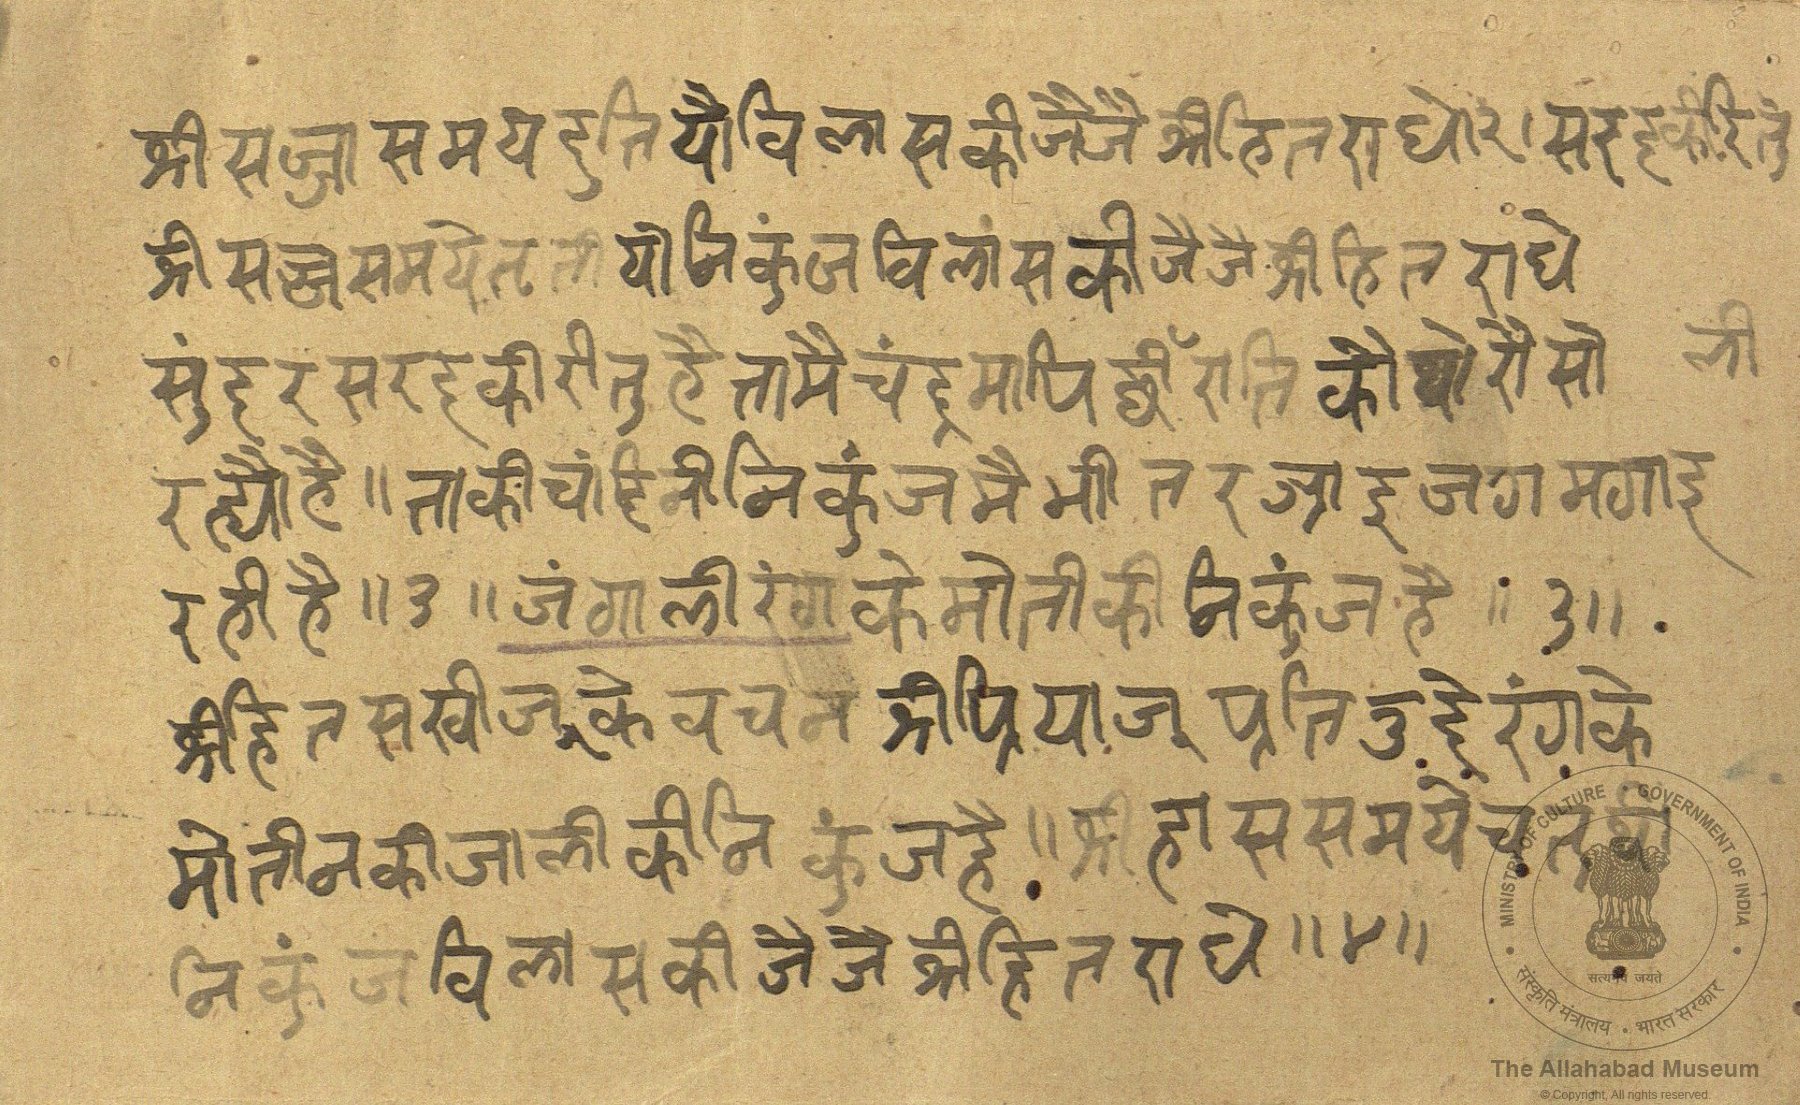 श्री सज्जा समय दुति यौ वि ला स की जै जै श्री हित रा धे २। सरद की रितु
श्री सज्ज समये त ती यो निकुंज विलां स की जै जै श्री हि त राधे
सुंदर सरद की रीतु है तामै चंद्रमा पि राति कौ सो ली
रह्यौ है ॥ ता की चांदिनी निकुंज मै भीतर आइ जगमगाइ
रही है ॥ ३ ॥ जंगाली रंग के मोती की निकुंज है ॥ ३॥
श्री हित सखी जू के वचन श्री प्रिया जू प्रति दुद्दे रंग के
मोतीन की जाली की निकुंज है ॥ श्री हास समये चतुर्थी
निकुंज विलास की जै जै श्री हित राधे ॥४॥
MINISTRY OF CULTURE · GOVERNMENT OF INDIA
सत्यमेव जयते
संस्कृति मंत्रालय · भारत सरकार
The Allahabad Museum
© Copyright, All rights reserved.